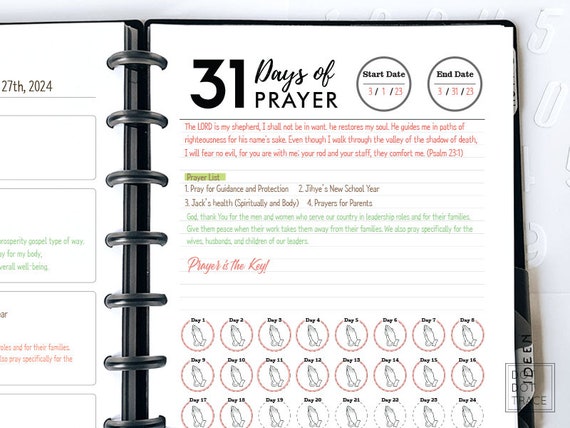 27th, 2024
prosperity gospel type of way.
ay for my body,
overall well-being.
ear
roles and for their families.
also pray specifically for the
31 Days of PRAYER
Start Date
3 / 1 / 23
End Date
3 / 31 / 23
The LORD is my shepherd, I shall not be in want. he restores my soul. He guides me in paths of
righteousness for his name's sake. Even though I walk through the valley of the shadow of death,
I will fear no evil, for you are with me; your rod and your staff, they comfort me. (Psalm 23:1)
Prayer List
1. Pray for Guidance and Protection 2. Jihye's New School Year
3. Jack's health (Spiritually and Body) 4. Prayers for Parents
God, thank You for the men and women who serve our country in leadership roles and for their families.
Give them peace when their work takes them away from their families. We also pray specifically for the
wives, husbands, and children of our leaders.
Prayer is the Key!
Day 1 Day 2 Day 3 Day 4 Day 5 Day 6 Day 7 Day 8
Day 9 Day 10 Day 11 Day 12 Day 13 Day 14 Day 15 Day 16
Day 17 Day 18 Day 19 Day 20 Day 21 Day 22 Day 23 Day 24
IDEEN
DO
DOT
TRACE